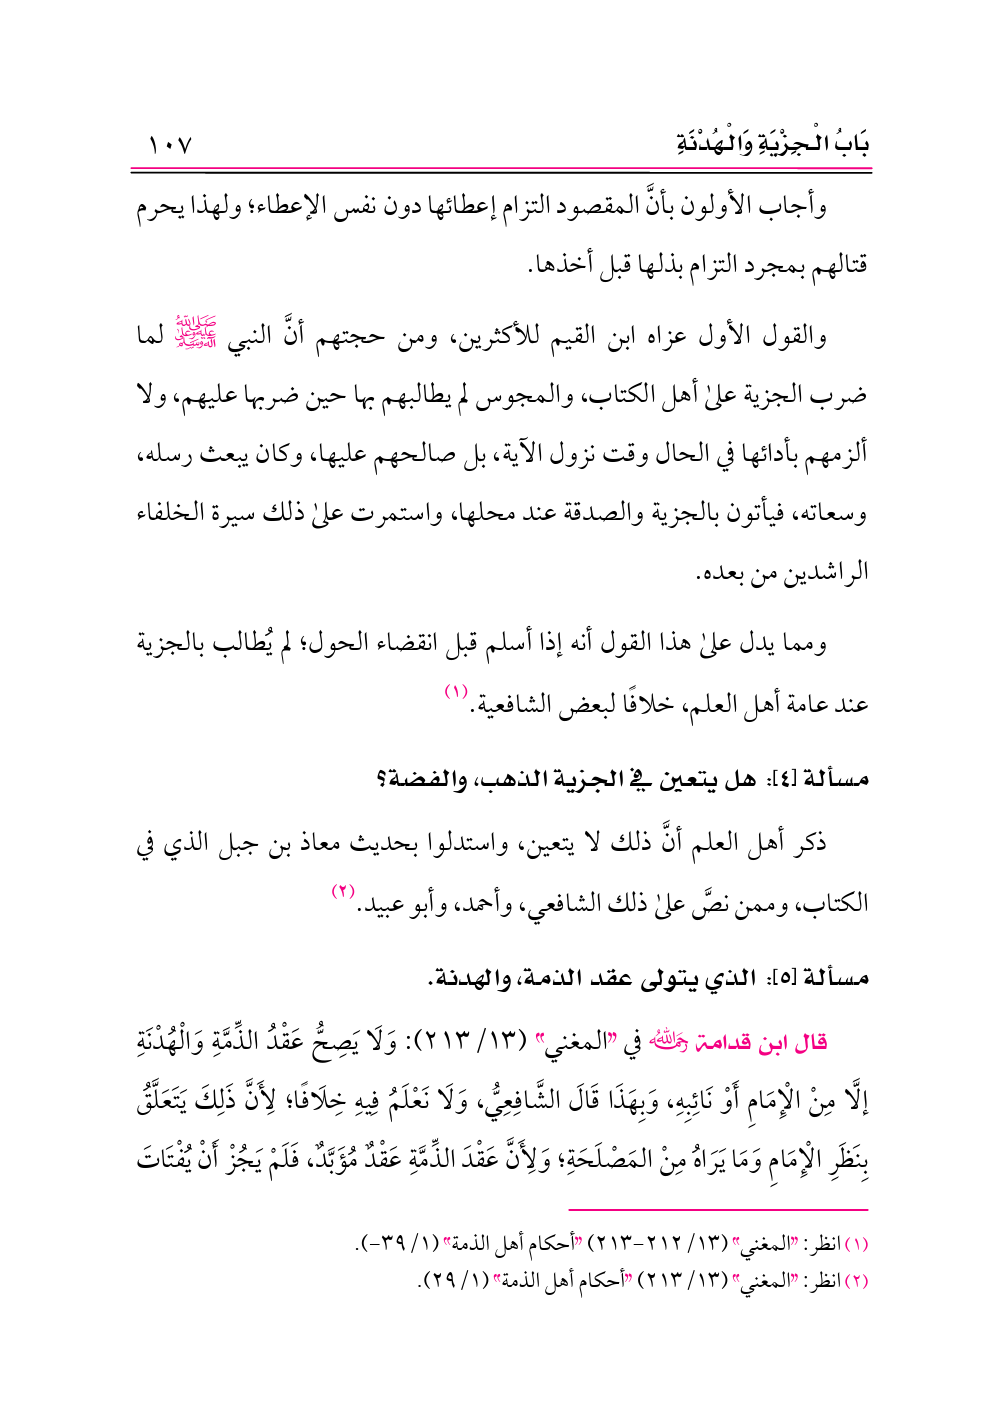 بَابُ الْجِزْيَةِ وَالْهُدْنَةِ ١٠٧
وأجاب الأولون بأنَّ المقصود التزام إعطائها دون نفس الإعطاء؛ ولهذا يحرم
قتالهم بمجرد التزام بذلها قبل أخذها.
والقول الأول عزاه ابن القيم للأكثرين، ومن حجتهم أنَّ النبي ﷺ لما
ضرب الجزية علىٰ أهل الكتاب، والمجوس لم يطالبهم بها حين ضربها عليهم، ولا
ألزمهم بأدائها في الحال وقت نزول الآية، بل صالحهم عليها، وكان يبعث رسله،
وسعاته، فيأتون بالجزية والصدقة عند محلها، واستمرت علىٰ ذلك سيرة الخلفاء
الراشدين من بعده.
ومما يدل علىٰ هذا القول أنه إذا أسلم قبل انقضاء الحول؛ لم يُطالب بالجزية
عند عامة أهل العلم، خلافًا لبعض الشافعية.(١)
مسألة [٤]: هل يتعين في الجزية الذهب، والفضة؟
ذكر أهل العلم أنَّ ذلك لا يتعين، واستدلوا بحديث معاذ بن جبل الذي في
الكتاب، وممن نصَّ علىٰ ذلك الشافعي، وأحمد، وأبو عبيد.(٢)
مسألة [٥]: الذي يتولى عقد الذمة، والهدنة.
قال ابن قدامة رحمه الله في "المغني" (١٣/ ٢١٣): وَلَا يَصِحُّ عَقْدُ الذِّمَّةِ وَالْهُدْنَةِ
إلَّا مِنْ الْإِمَامِ أَوْ نَائِبِهِ، وَبِهَذَا قَالَ الشَّافِعِيُّ، وَلَا نَعْلَمُ فِيهِ خِلَافًا؛ لِأَنَّ ذَلِكَ يَتَعَلَّقُ
بِنَظَرِ الْإِمَامِ وَمَا يَرَاهُ مِنْ المَصْلَحَةِ؛ وَلِأَنَّ عَقْدَ الذِّمَّةِ عَقْدٌ مُؤَبَّدٌ، فَلَمْ يَجُزْ أَنْ يُفْتَاتَ
(١) انظر: "المغني" (١٣/ ٢١٢-٢١٣) "أحكام أهل الذمة" (١/ ٣٩-).
(٢) انظر: "المغني" (١٣/ ٢١٣) "أحكام أهل الذمة" (١/ ٢٩).